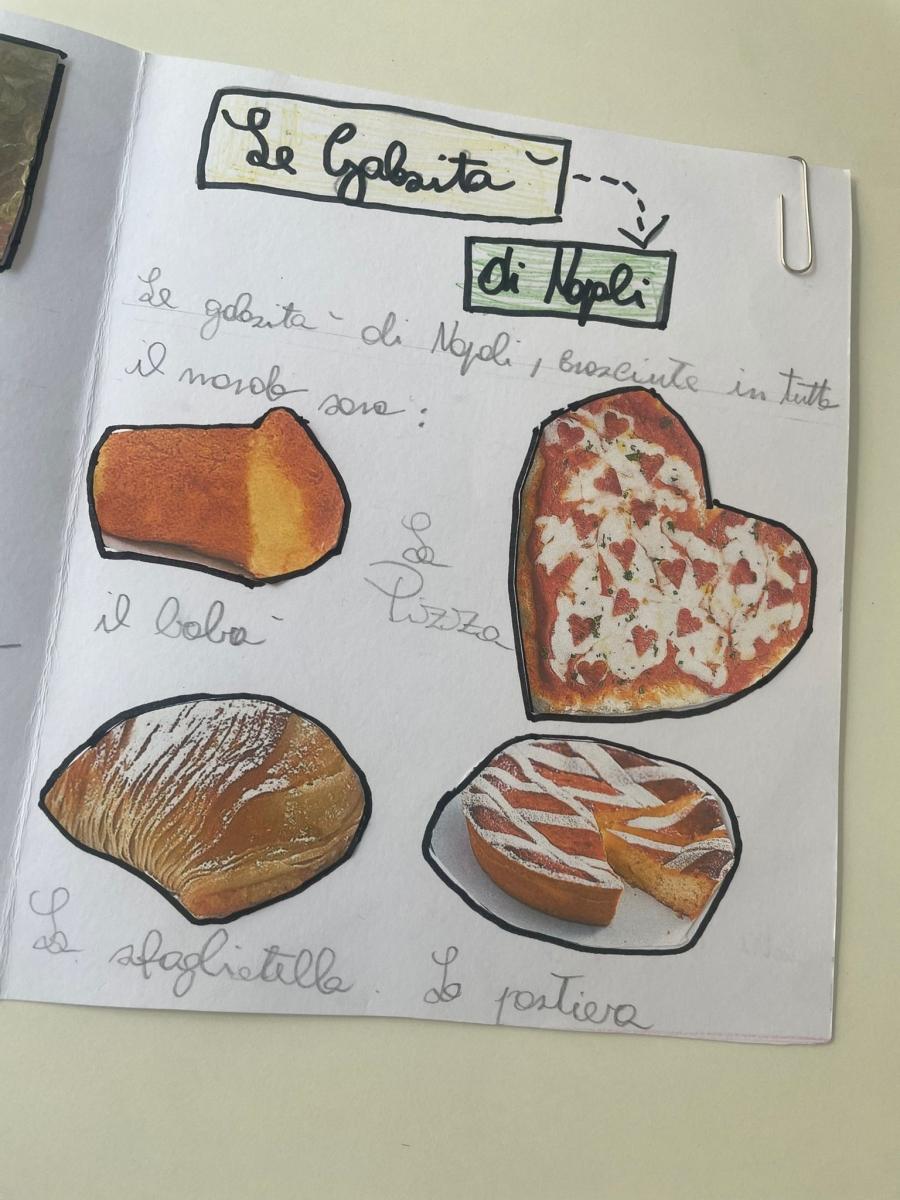 Le Golosità
di Napoli
Le golosità di Napoli, conosciute in tutto
il mondo sono:
il babà
La
Pizza
La sfaglietella.
La pastiera